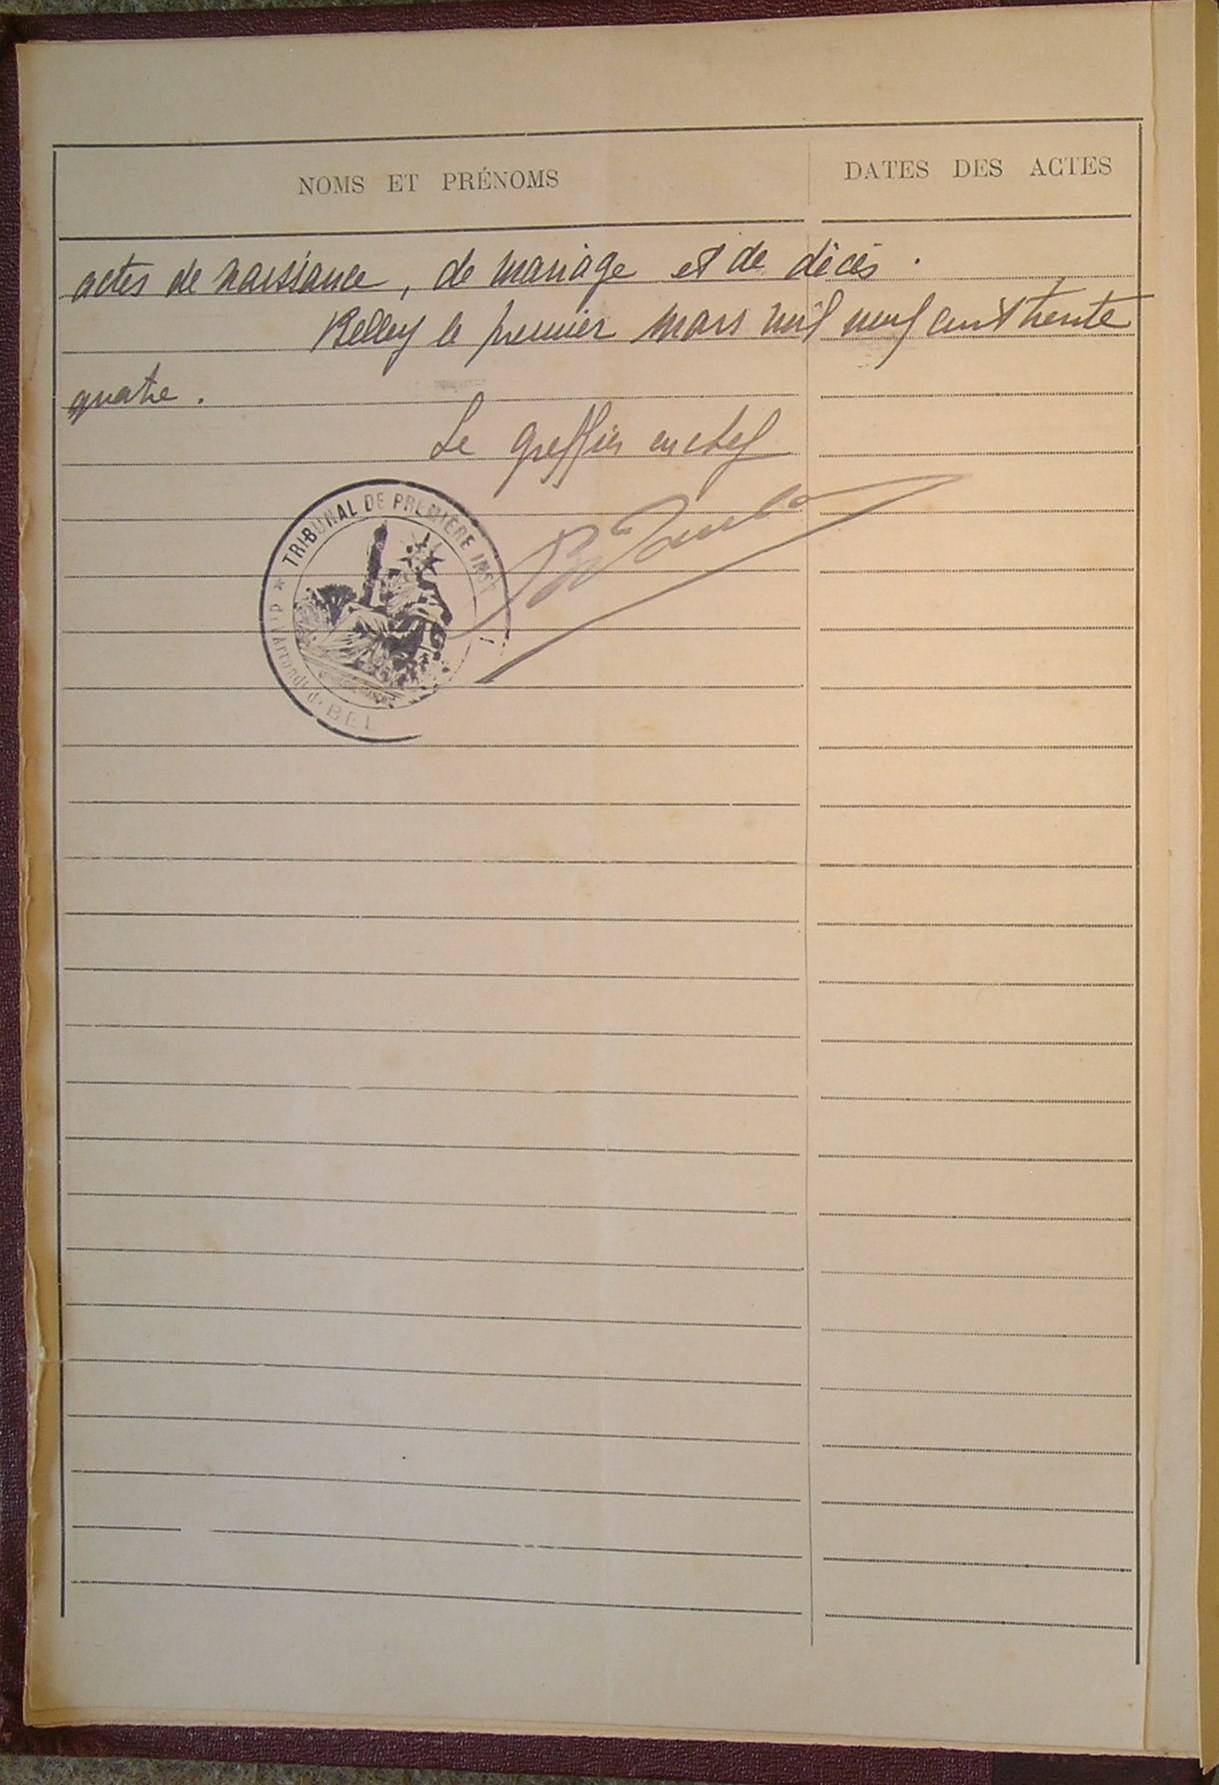 NOMS ET PRÉNOMS
DATES DES ACTES
actes de naissance, de mariage et de décès.
Belley le premier mars mil neuf cent trente
quatre.
Le greffier en chef
TRIBUNAL DE PREMIÈRE INST
d l'Arrondt de BEL